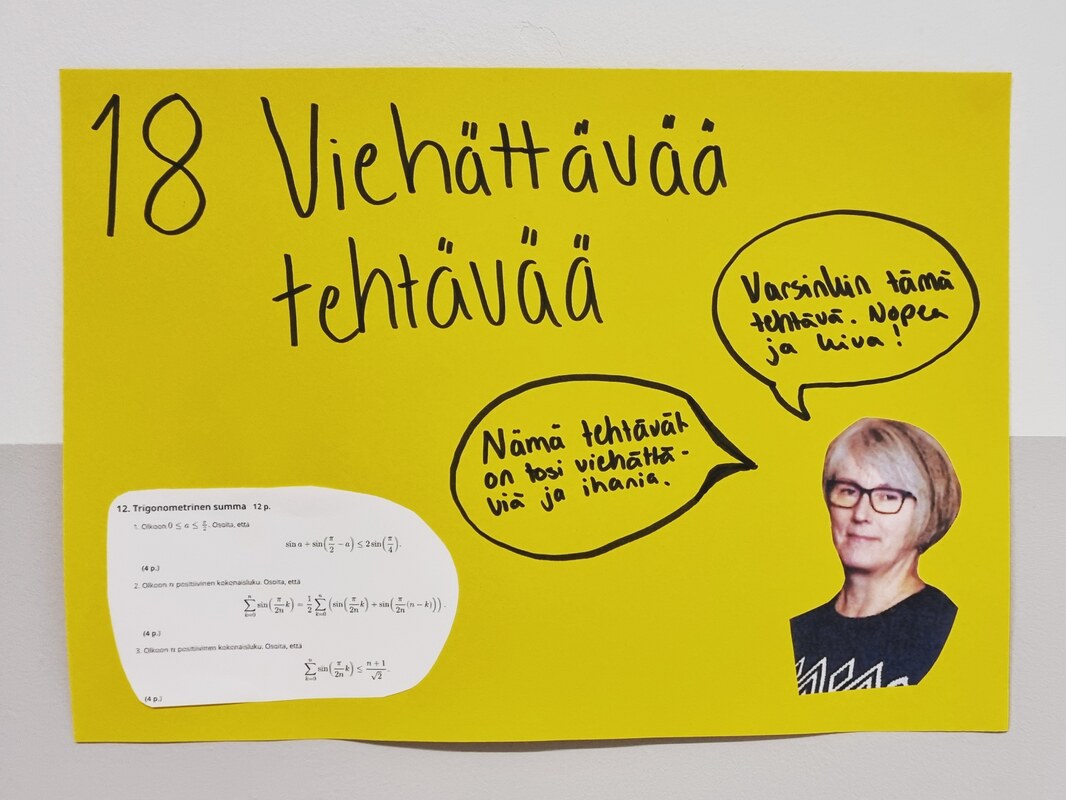 18 Viehättävää
tehtävää
Varsinkin tämä
tehtävä. Nopea
ja kiva!
Nämä tehtävät
on tosi viehättä-
viä ja ihania.
12. Trigonometrinen summa 12 p.
1. Olkoon 0 ≤ a ≤ π/2. Osoita, että
sin a + sin(π/2 − a) ≤ 2 sin(π/4).
(4 p.)
2. Olkoon n positiivinen kokonaisluku. Osoita, että
∑_{k=0}^{n} sin(π/2n k) = 1/2 ∑_{k=0}^{n} (sin(π/2n k) + sin(π/2n (n − k))).
(4 p.)
3. Olkoon n positiivinen kokonaisluku. Osoita, että
∑_{k=0}^{n} sin(π/2n k) ≤ n + 1/√2.
(4 p.)